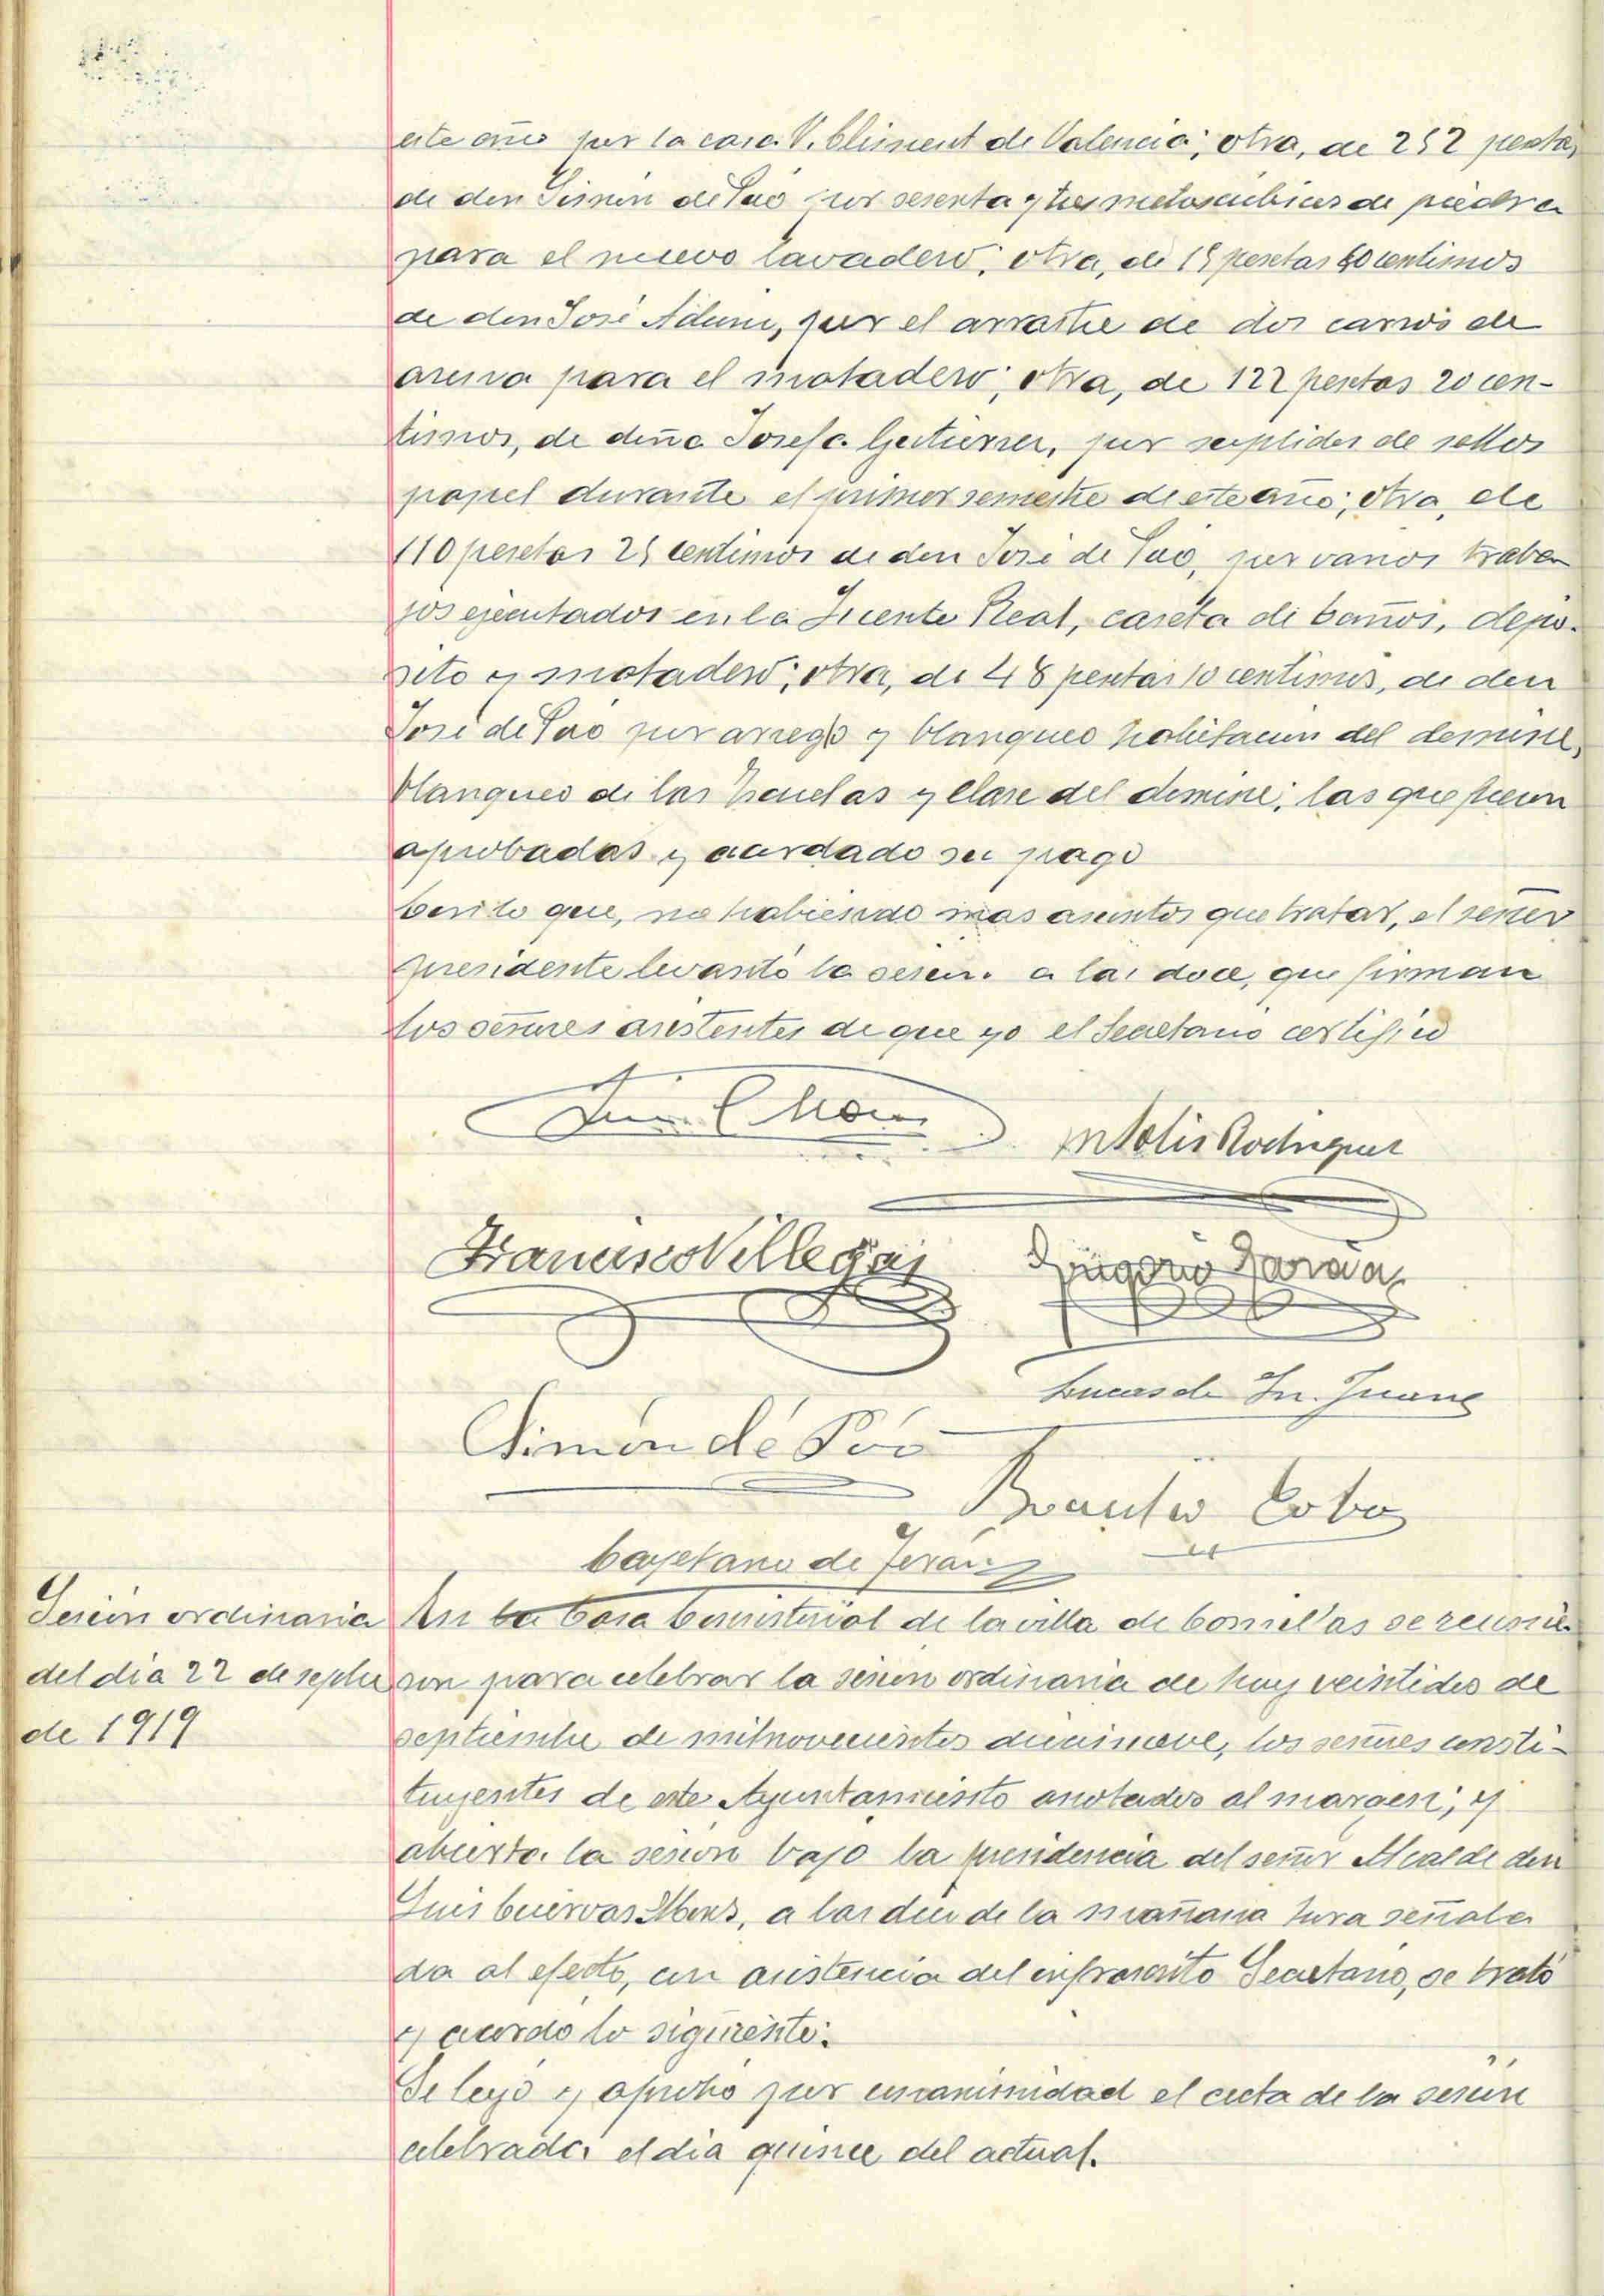 este año por la casa V. Climent de Valencia; otra, de 252 pesetas
de don Simón de Poo por sesenta y tres metros cubicos de piedra
para el nuevo lavadero; otra, de 15 pesetas 60 centimos
de don José, por el arrastre de dos carros de
arena para el matadero; otra, de 122 pesetas 20 cen-
timos, de doña Josefa Gutierrez, por suplidos de sellos
papel durante el primer semestre de este año; otra, de
110 pesetas 25 centimos de don José de Poo, por varios traba
jos ejecutados en la Fuente Real, caseta de baños, depo-
sito y matadero; otra, de 48 pesetas 10 centimos, de don
José de Poo por arreglo y blanqueo habitacion del domine,
blanqueo de las Escuelas y clase del domine; las que fueron
aprobadas y acordado su pago
Con lo que, no habiendo mas asuntos que tratar, el señor
presidente levantó la sesion a las doce, que firman
los señores asistentes de que yo el Secretario certifico
M Solis Rodriguez
Francisco Villegas
Gregorio Garcia
Lucas de Sn. Juan
Simón de Póo
Braulio Cobo
Cayetano de Terán
Sesion ordinaria
del dia 22 de septbre
de 1919
En la Casa Consistorial de la villa de Comillas se reunie-
ron para celebrar la sesion ordinaria de hoy veintidos de
septiembre de mil novecientos diecinueve, los señores consti-
tuyentes de este Ayuntamiento anotados al margen; y
abierta la sesion bajo la presidencia del señor Alcalde don
Luis Cuervas Mons, a las diez de la mañana hora señala
da al efecto, con asistencia del infrascrito Secretario, se trató
y acordó lo siguiente:
Se leyó y aprobó por unanimidad el acta de la sesion
celebrada el dia quince del actual.